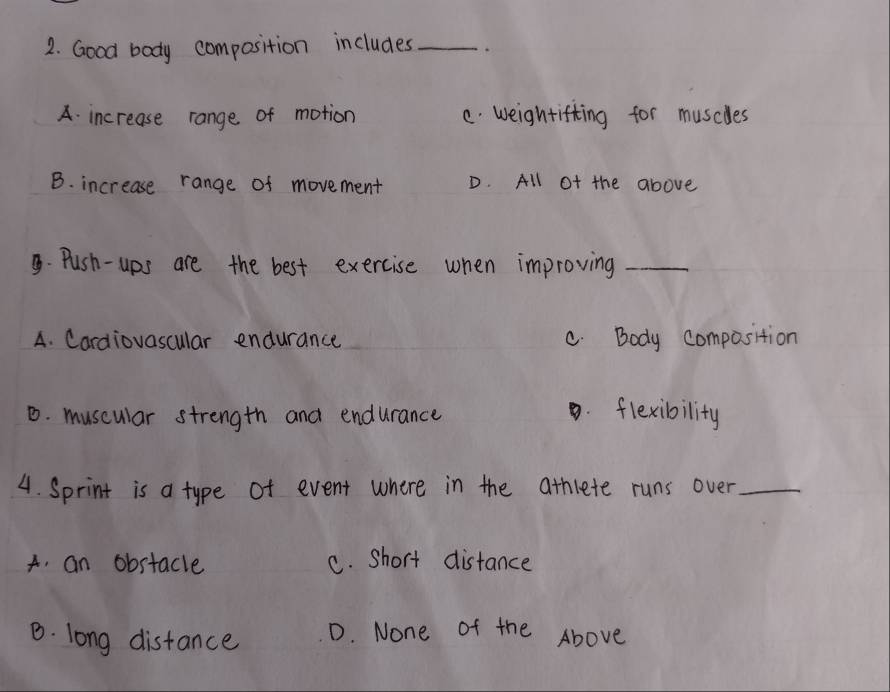 2. Good body composition includes____.
A. increase range of motion
C. Weightifting for muscles
B. increase range of movement
D. All of the above
3. Push-ups are the best exercise when improving ____
A. Cardiovascular endurance
C. Body composition
B. muscular strength and endurance
D. flexibility
4. Sprint is a type of event where in the athlete runs over____
A. an obstacle
C. Short distance
B. long distance
D. None of the Above